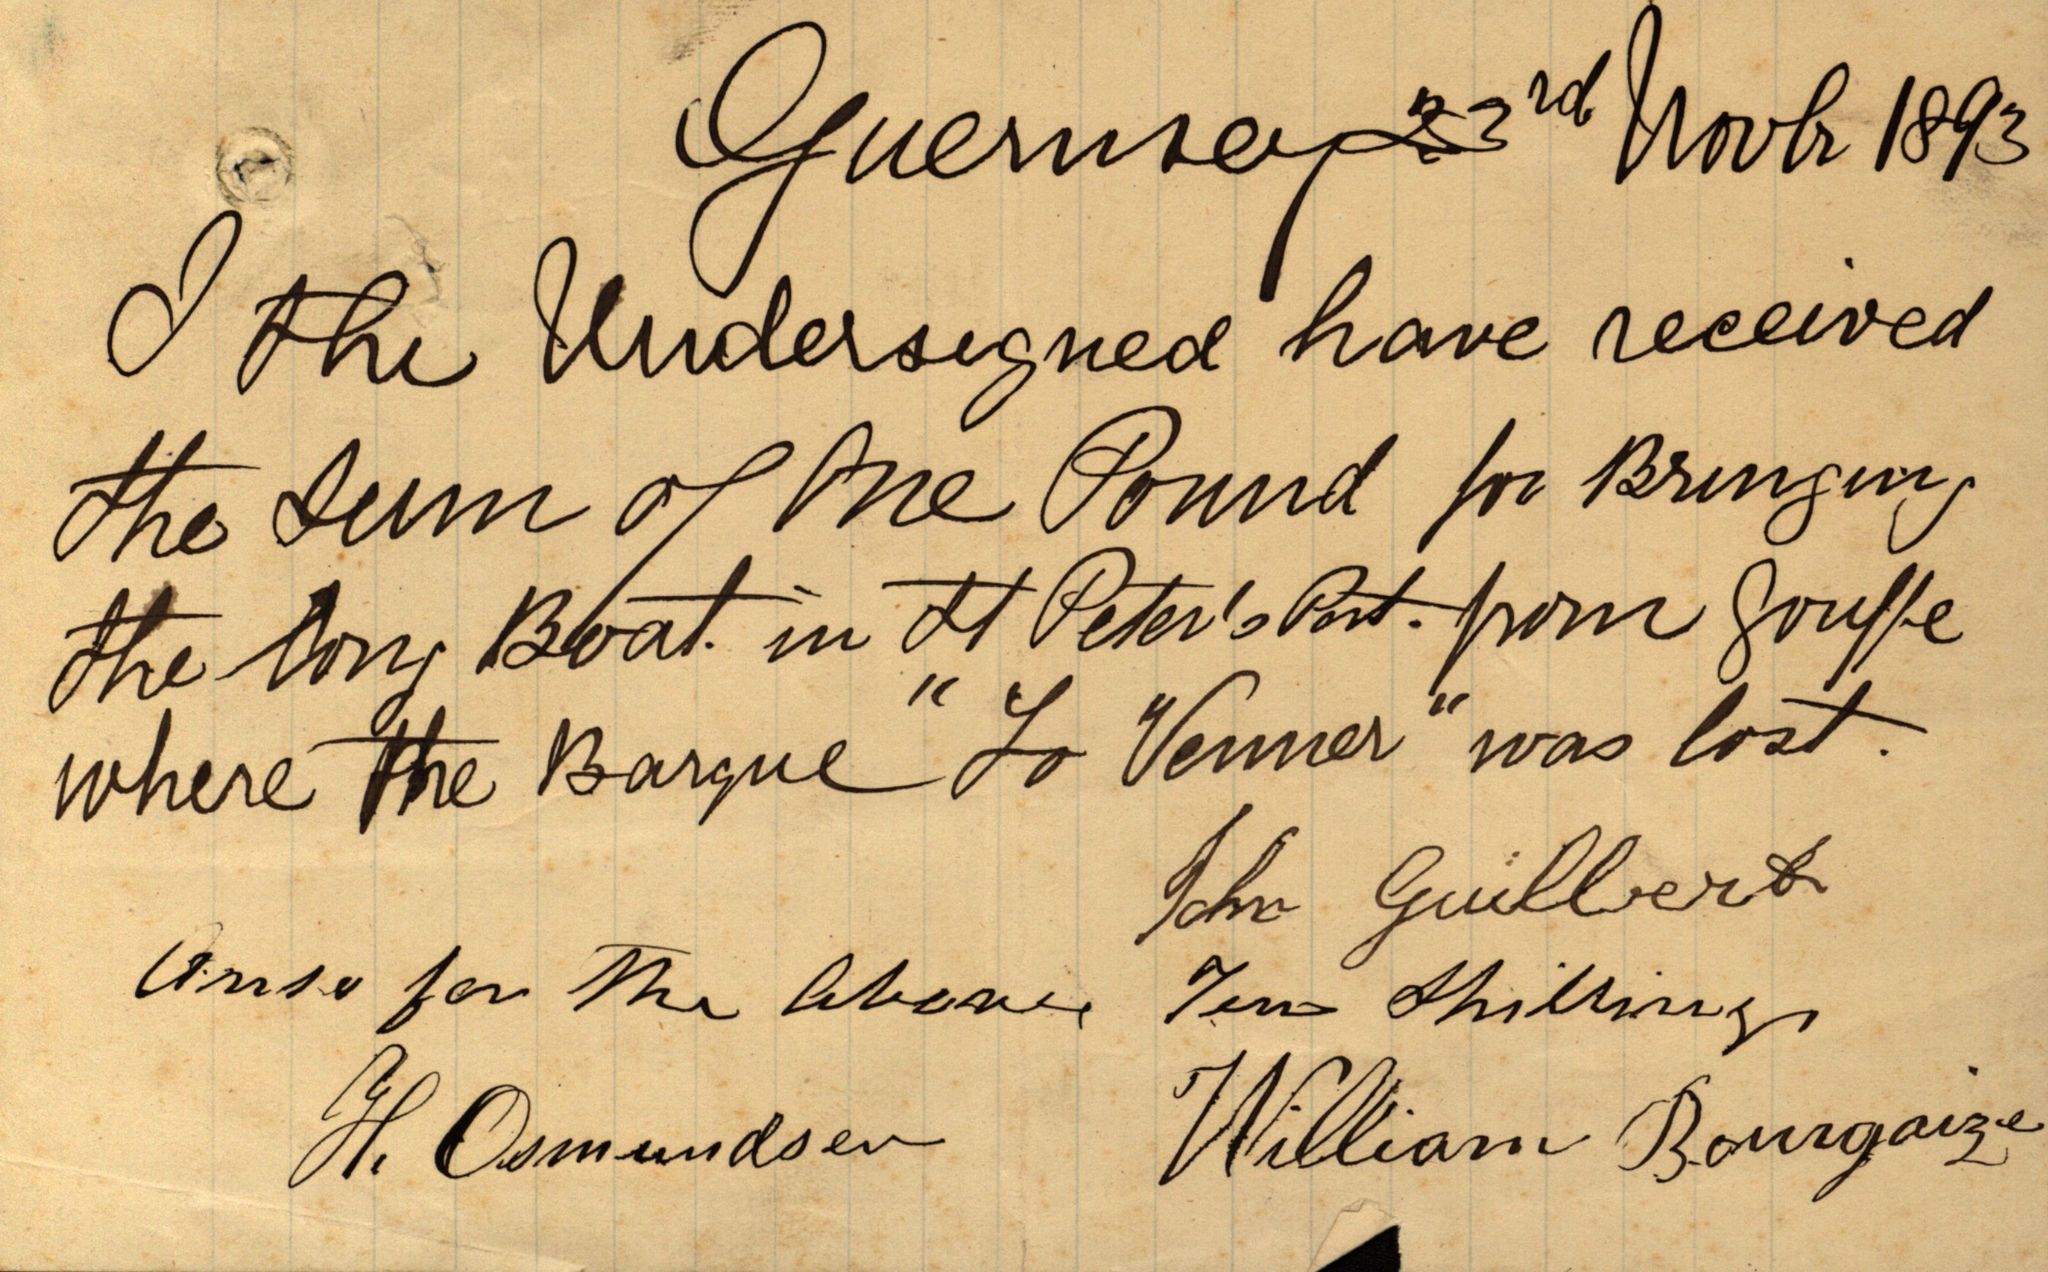 Guernsey 23rd Novbr 1893
I the Undersigned have received
the sum of One Pound for Bringing
the long Boat in St Peter's Port. from Gouffe
where the Barque "To Venner" was lost.
John Guilbert
for the above Ten Shillings
H. Osmundsen William Bourgaize